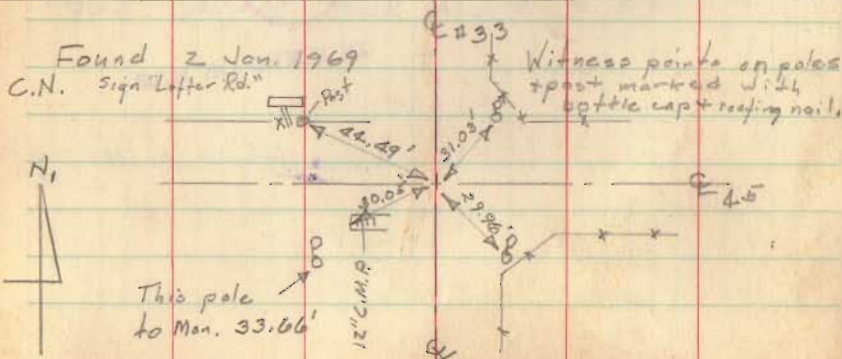 Found 2 Jan. 1969
C.N. Sign "Lofter Rd."
Post
℄ #33
Witness points on poles
+ post marked with
bottle cap + roofing nail.
44.49'
31.03'
N.
30.05'
29.96'
℄ 45
12" C.M.P.
This pole
to Mon. 33.66'
℄